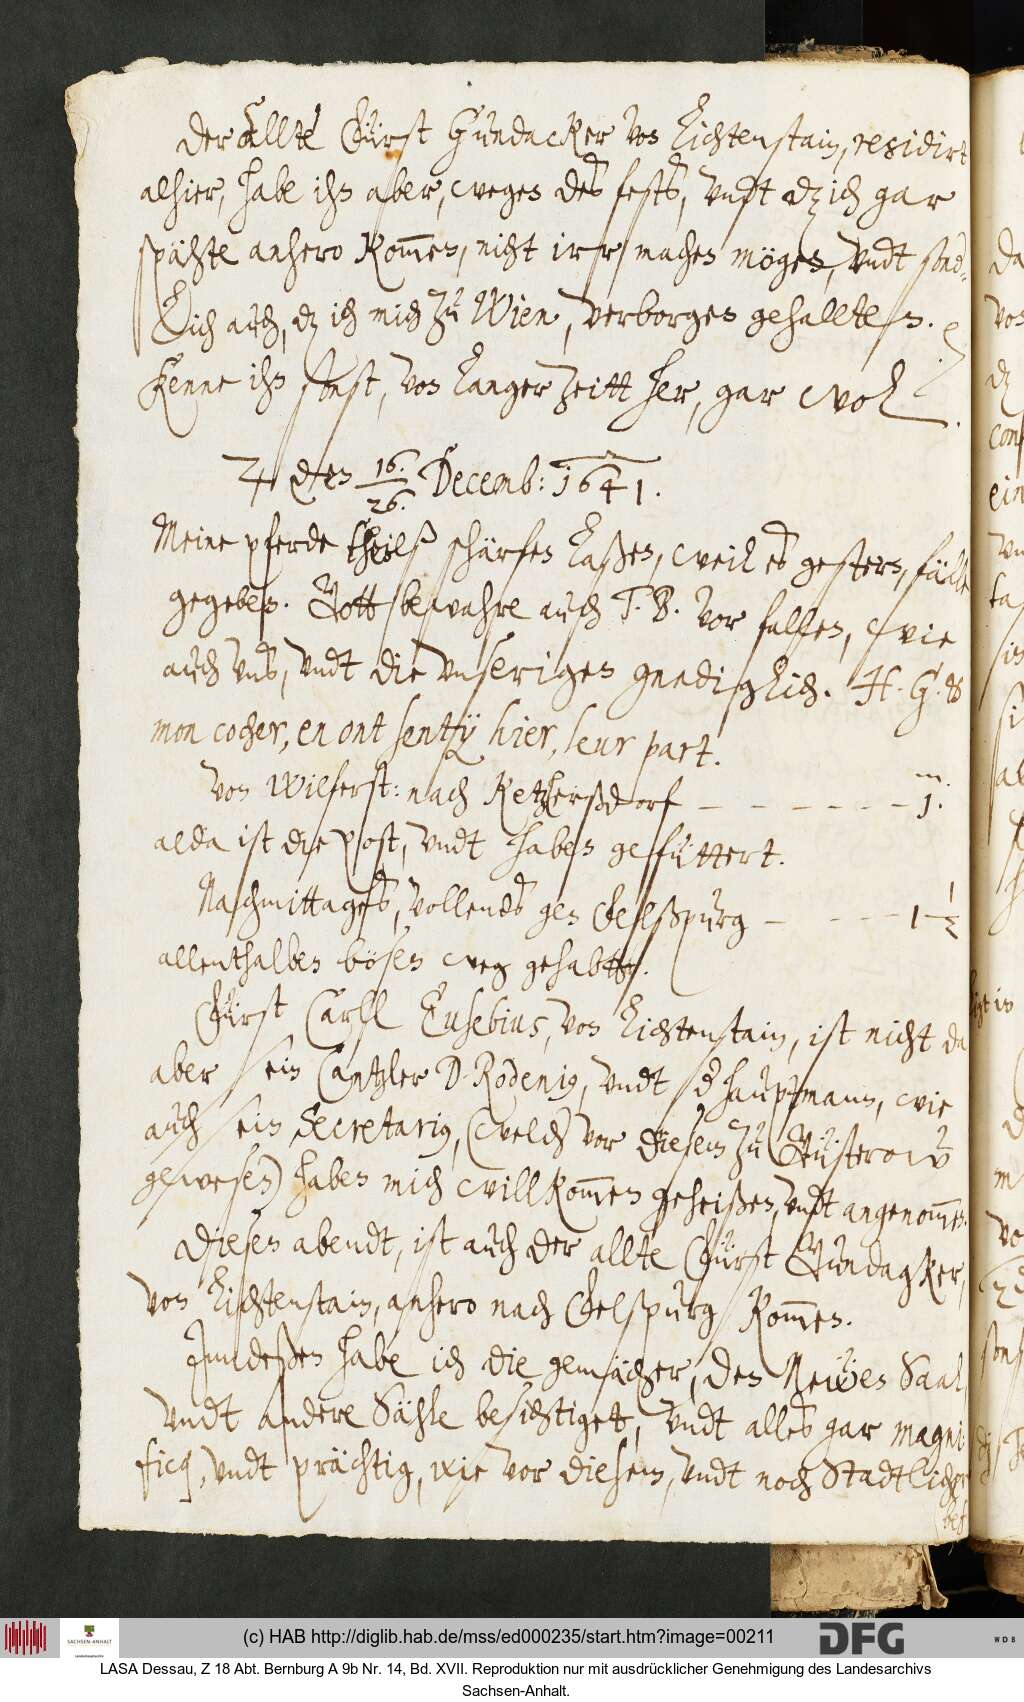 Der allte Fürst Gundacker von Lichtenstain, residirt
alhier, habe ihn aber, wegen des fests, undt dz ich gar
spähte anhero kom̅en, nicht irr machen mögen, undt son-
Dlich auch, dz ich mich zu Wien, verborgen gehalltten.
Kenne ihn sonst, von langer zeitt her, gar wol.
♃ den 16./26. Decemb: 1641.
Meine pferde theilß schärfen laßen, weil es gestern, fälle
gegeben. Gott bewahre auch T. B. vor fallen, wie
auch uns, undt die unserigen gnediglich. H. G. &
mon cocher, en ont senty hier, leur part.
von Wilferst: nach Ketzlerßdorf – – – – – – – 1. m
alda ist die post, undt haben gefüttert.
Nachmittags, vollends gen Felßpurg – – – – 1½
allenthalben bösen weg gehabtt.
Fürst Carll Eusebius, von Lichtenstain, ist nicht da
aber sein Cantzler D. Rodenig, undt sd haupmann, wie
auch sein Secretarig, (welch vor diesem zu Güsterow
gewesen) haben mich willkom̅en geheißen, undt angenom̅en.
Diesen abendt, ist auch der allte Fürst Gundagker,
von Lichtenstain, anhero nach Felspurg kom̅en.
Inndeßen habe ich die gemächer, den Neuen Saal,
undt andere Sähle besichtiget, undt alles gar magni-
ficq, undt prächtig, wie vor diesem, undt noch Stadtlicher
bef
(c) HAB http://diglib.hab.de/mss/ed000235/start.htm?image=00211
DFG
WDB
SACHSEN-ANHALT
LASA Dessau, Z 18 Abt. Bernburg A 9b Nr. 14, Bd. XVII. Reproduktion nur mit ausdrücklicher Genehmigung des Landesarchivs
Sachsen-Anhalt.